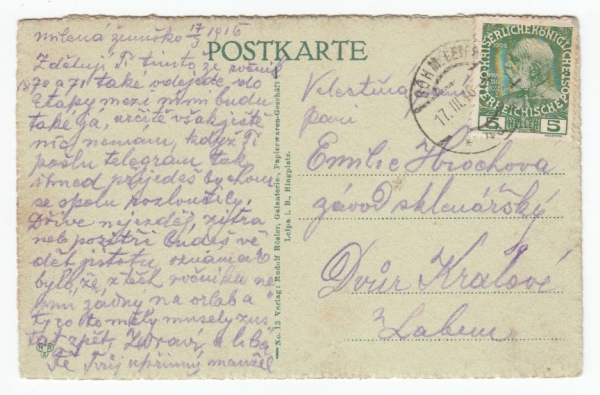 milená ženuško 17/3 1916
Zděluji Ti tímto že ročník
1870 a 71 také odejede do
Etapy mezi nimi budu
také já, určitě však ještě
nic nemáme, když Ti
pošlu telegram tak
ihned přijedeš bychom
se spolu rozloučily.
Dříve nejezdeš, zítra
neb pozítří budeš vě-
dět jistotu, oznámeno
bylo, že z těch ročníku ne
ní žádny na
a ty co to měly musely zus
tat zpět, Zdraví a líbá
Tě Tvůj upřimný manžel
POSTKARTE
No. 13 Verlag: Rudolf Rösler, Galanterie-, Papierwaren-Geschäft
Leipa i. B., Ringplatz.
BÖHM. LEIPA
17. III. 16
KAISERLICHE KÖNIGLICHE
ÖSTERREICHISCHE POST
1908
5 HELLER 5
paní
Emilie Hrochova
závod sklenářský
Dvůr Králové
n/Labem